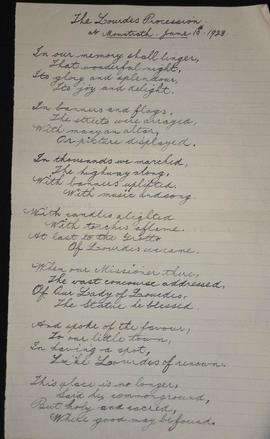 The Lourdes Procession
At Mountrath - June 10th - 1928.
In our memory shall linger,
That wonderful night,
Its glory and splendour,
Its joy and delight.
In banners and flags,
The streets were arrayed,
With many an altar,
Or picture displayed.
In thousands we marched,
The highway along,
With banners uplifted
With music and song.
With candles alighted
With torches aflame.
At last to the Grotto
Of Lourdes we came.
When our Missioner there,
The vast concourse addressed,
Of Our Lady of Lourdes,
The Statue he blessed.
And spoke of the favour,
To our little town,
In having a spot,
Like Lourdes of renown.
This place is no longer,
Said he, common ground,
But holy and sacred,
Where good may be found.